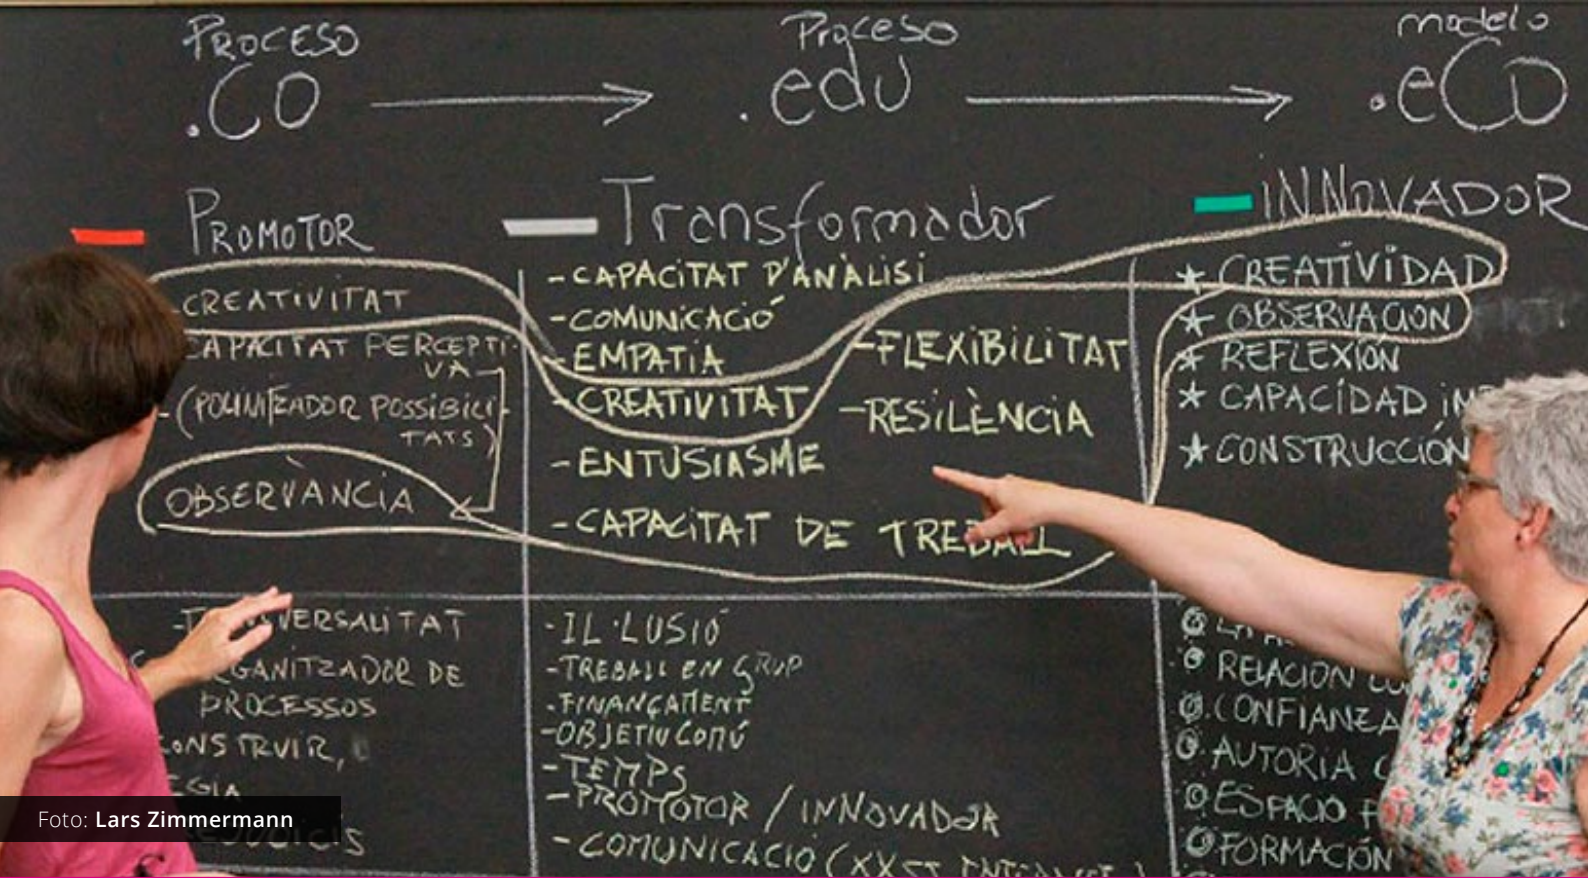 PROCESO
.CO
Proceso
.edu
modelo
.eCO
PROMOTOR
CREATIVITAT
CAPACITAT PERCEPTI-
VA
- (POLINITZADOR POSSIBILI-
TATS)
OBSERVÀNCIA
Transformador
- CAPACITAT D'ANÀLISI
- COMUNICACIÓ
- EMPATIA
- CREATIVITAT
- ENTUSIASME
- CAPACITAT DE TREBALL
- FLEXIBILITAT
- RESILÈNCIA
INNOVADOR
★ CREATIVIDAD
★ OBSERVACION
★ REFLEXIÓN
★ CAPACIDAD
★ CONSTRUCCIÓN
DE
PROCESSOS
- IL·LUSIÓ
- TREBALL EN GRUP
- FINANÇAMENT
- OBJETIU COMÚ
- TEMPS
- PROMOTOR / INNOVADOR
- COMUNICACIÓ
RELACION
CONFIANZA
AUTORIA
ESPACIO
FORMACIÓN
Foto: Lars Zimmermann